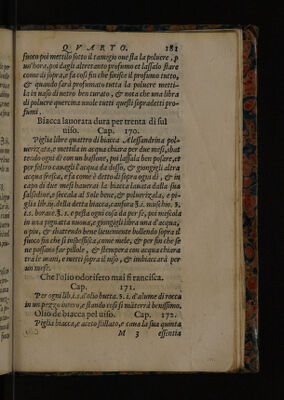 QVARTO. 181
fuoco poi mettilo sotto il tamegio oue sta la poluere, p
un'hora, poi dagli altretanto profumo et lassalo stare
come di sopra, e fa cosi fin che finisce il profumo tutto,
& quando sarà profumata tutta la poluere metti-
la in uaso di uetro ben turato, & nota che una libra
di poluere quercina uuole tutti questi sopradetti pro-
fumi.
Biacca lauorata dura per trenta dì sul
uiso. Cap. 170.
Piglia libre quattro di biacca Alessandrina pol-
uerizata, e mettila in acqua chiara per due mesi, sbat
tendo ogni dì con un bastone, poi lassala ben posare, et
per feltro cauagli l'acqua da dosso, & giongigli altra
acqua fresca, e fa come è detto di sopra ogni dì, & in
capo di due mesi hauerai la biacca lauata dalla sua
salsedine, e seccala al Sole bene, & poluerizala, e pi-
glia lib. iij. della detta biacca, canfora ʒ. i. moschio. ʒ.
i. s. borace. ʒ. i. e pesta ogni cosa da per se, poi mescola
in una pignatta nuoua, e giongigli libra una d'acqua,
o piu, & sbattendo bene lieuemente bollendo sopra il
fuoco fin che si inspessisca, come mele, & per fin che se
ne possano far pallote, & stempera con acqua chiara
tra le mani, e metti sopra il uiso, & imbiacarà per
un mese.
Che l'olio odorifero mai si rancisca.
Cap. 171.
Per ogni lib. i. s. d'olio butta. ʒ. i. d'alume di rocca
in un pezzo intero, e stando così si materrà benissimo.
Olio de biacca pel uiso. Cap. 172.
Piglia biacca, e aceto stillato, e caua la sua quinta
M 3 essentia